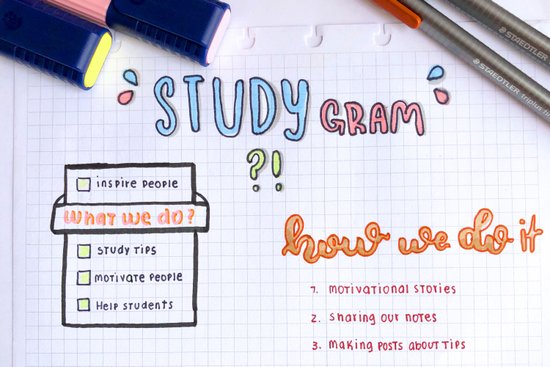 STUDY GRAM
?!
inspire people
what we do?
STUDY TIPS
MOTIVATE PEOPLE
HELP STUDENTS
how we do it
1. Motivational stories
2. Sharing our notes
3. Making posts about tips
STAEDTLER
STAEDTLER triplus